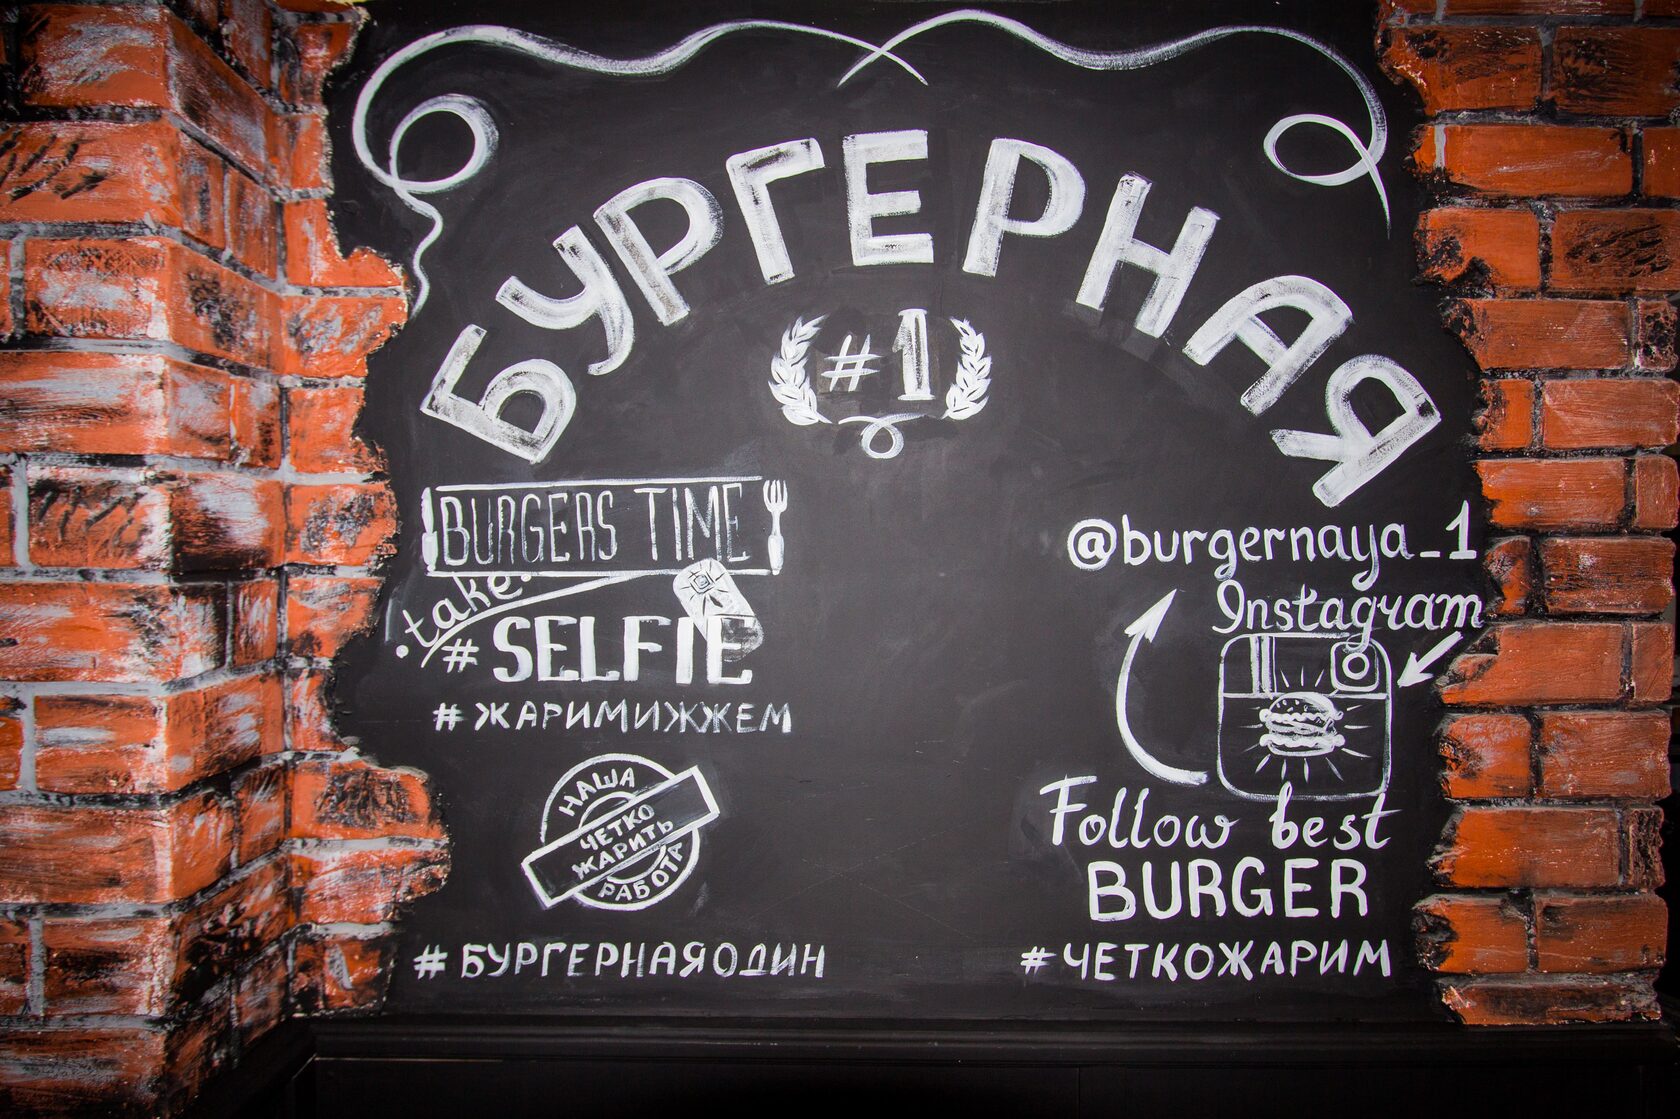 БУРГЕРНАЯ
#1
BURGERS TIME
.take.
# SELFIE
#ЖАРИМИЖЖЕМ
НАША
ЧЕТКО
ЖАРИТЬ
РАБОТА
#БУРГЕРНАЯОДИН
@burgernaya_1
Instagram
Follow best
BURGER
#ЧЕТКОЖАРИМ